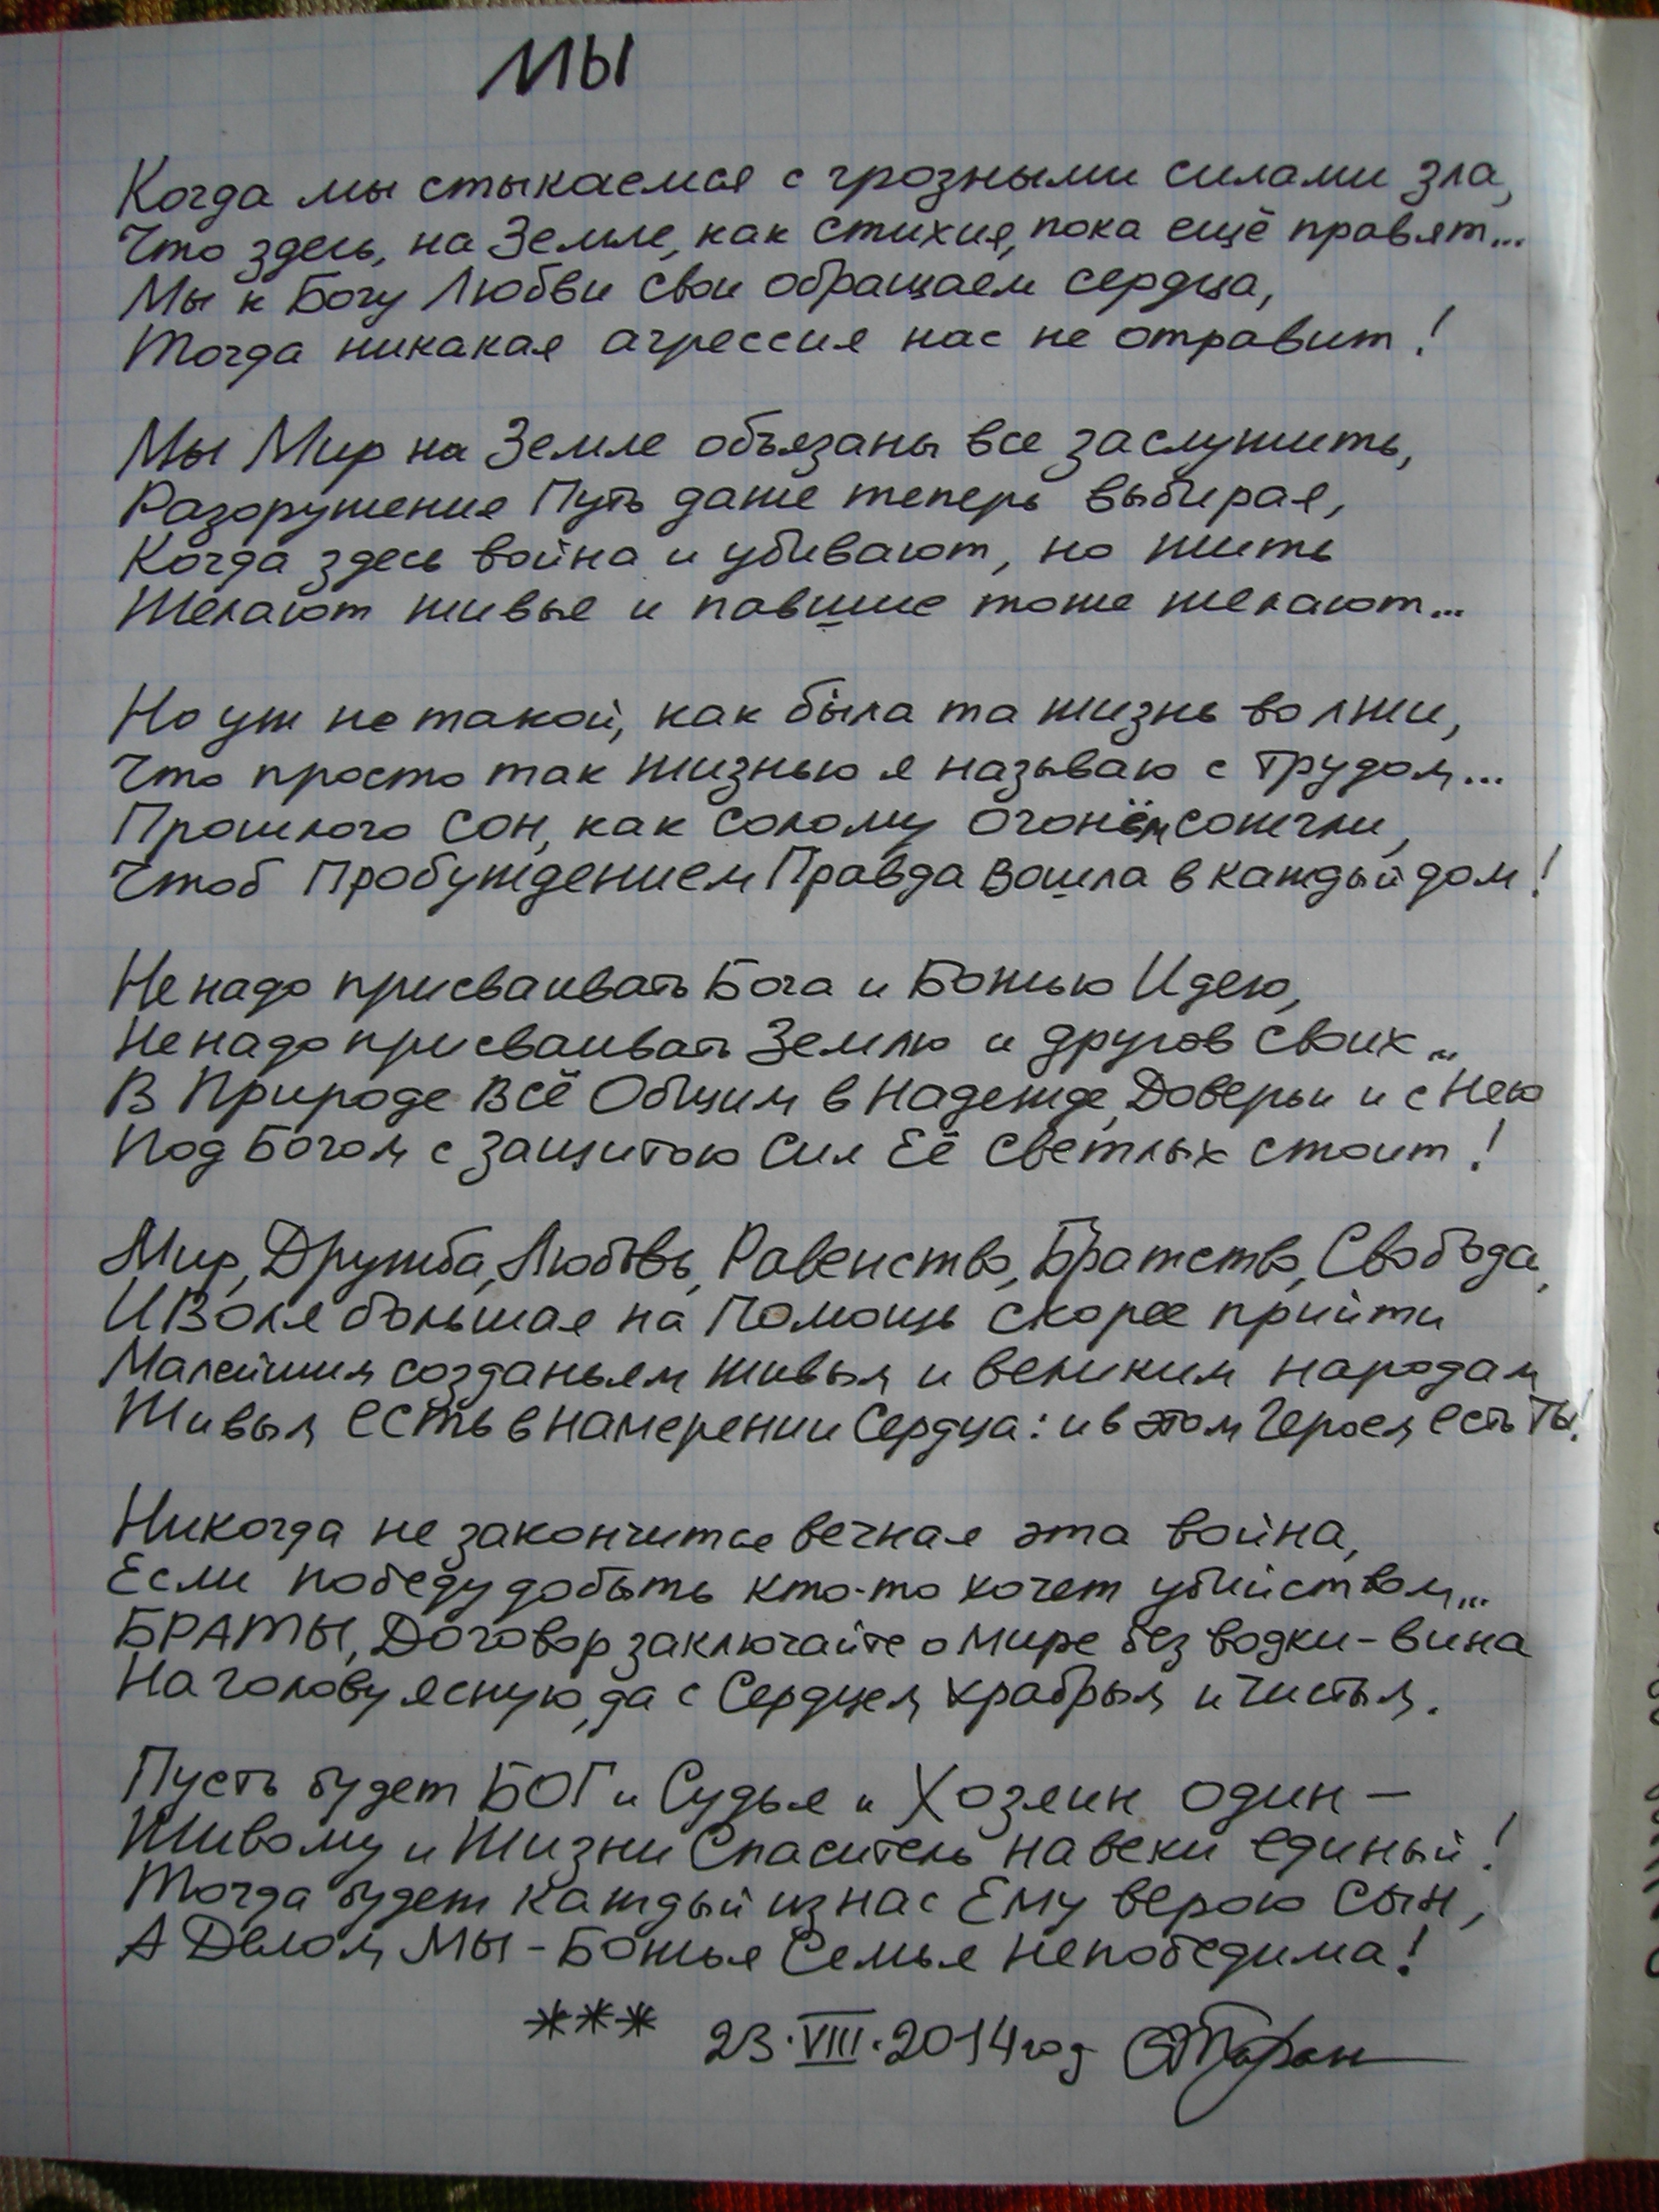 МЫ
Когда мы стыкаемся с грозными силами зла,
Что здесь, на Земле, как стихия, пока ещё правят...
Мы к Богу Любви свои обращаем сердца,
Тогда никакая агрессия нас не отравит!
Мы Мир на Земле обязаны все заслужить,
Разоружения Путь даже теперь выбирая,
Когда здесь война и убивают, но жить
Желают живые и павшие тоже желают...
Но уж не такой, как была та жизнь во лжи,
Что просто так жизнью я называю с трудом...
Прошлого сон, как солому огонём сожгли,
Чтоб Пробуждением Правда Вошла в каждый дом!
Не надо присваивать Бога и Божью Идею,
Не надо присваивать Землю и другов своих...
В Природе Всё Общим в Надежде, Доверьи и с Нею
Под Богом с защитою Сил Её Светлых стоит!
Мир, Дружба, Любовь, Равенство, Братство, Свобода,
И Воля большая на Помощь скорее прийти
Малейшим созданьем живым и великим народам
Живым есть в намерении Сердца: и в этом Героем есть Ты!
Никогда не закончится вечная эта война,
Если победу добыть кто-то хочет убийством...
БРАТЫ, Договор заключайте о мире без водки-вина
На голову ясную, да с Сердцем храбрым и чистым.
Пусть будет БОГ и Судья и Хозяин один —
Живому и Жизни Спаситель навеки единый!
Тогда будет каждый из нас Ему верою Сын,
А Делом, МЫ - Божья Семья непобедима!
*** 23.VIII.2014 год